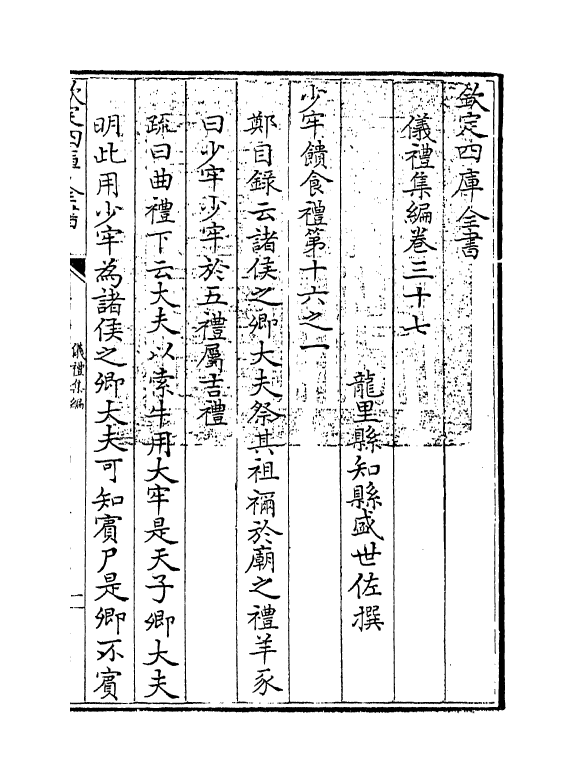 欽定四庫全書
儀禮集編卷三十七
龍里縣知縣盛世佐撰
少牢饋食禮第十六之一
鄭目錄云諸侯之卿大夫祭其祖禰於廟之禮羊豕
曰少牢少牢於五禮屬吉禮
疏曰曲禮下云大夫以索牛用大牢是天子卿大夫
明此用少牢為諸侯之卿大夫可知賓尸是卿不賓
欽定四庫全書
儀禮集編